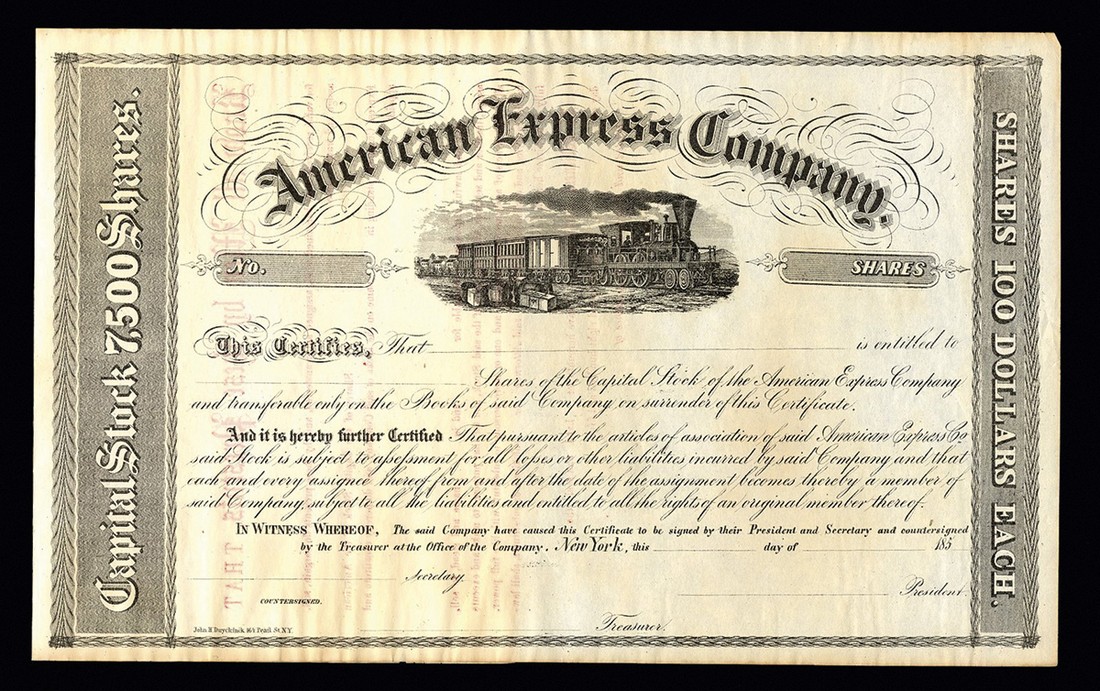 American Express Company.
Capital Stock 7,500 Shares.
SHARES 100 DOLLARS EACH.
No.
SHARES
This Certifies, That is entitled to
Shares of the Capital Stock of the American Express Company
and transferable only on the Books of said Company on surrender of this Certificate.
And it is hereby further Certified That pursuant to the articles of association of said American Express Co
said Stock is subject to assessment for all losses or other liabilities incurred by said Company and that
each and every assignee thereof from and after the date of the assignment becomes thereby a member of
said Company, subject to all the liabilities and entitled to all the rights of an original member thereof.
IN WITNESS WHEREOF, The said Company have caused this Certificate to be signed by their President and Secretary and countersigned
by the Treasurer at the Office of the Company, New York, this day of 185
Secretary.
President.
COUNTERSIGNED.
Treasurer.
John H Duyckinck, 164 Pearl St. N.Y.